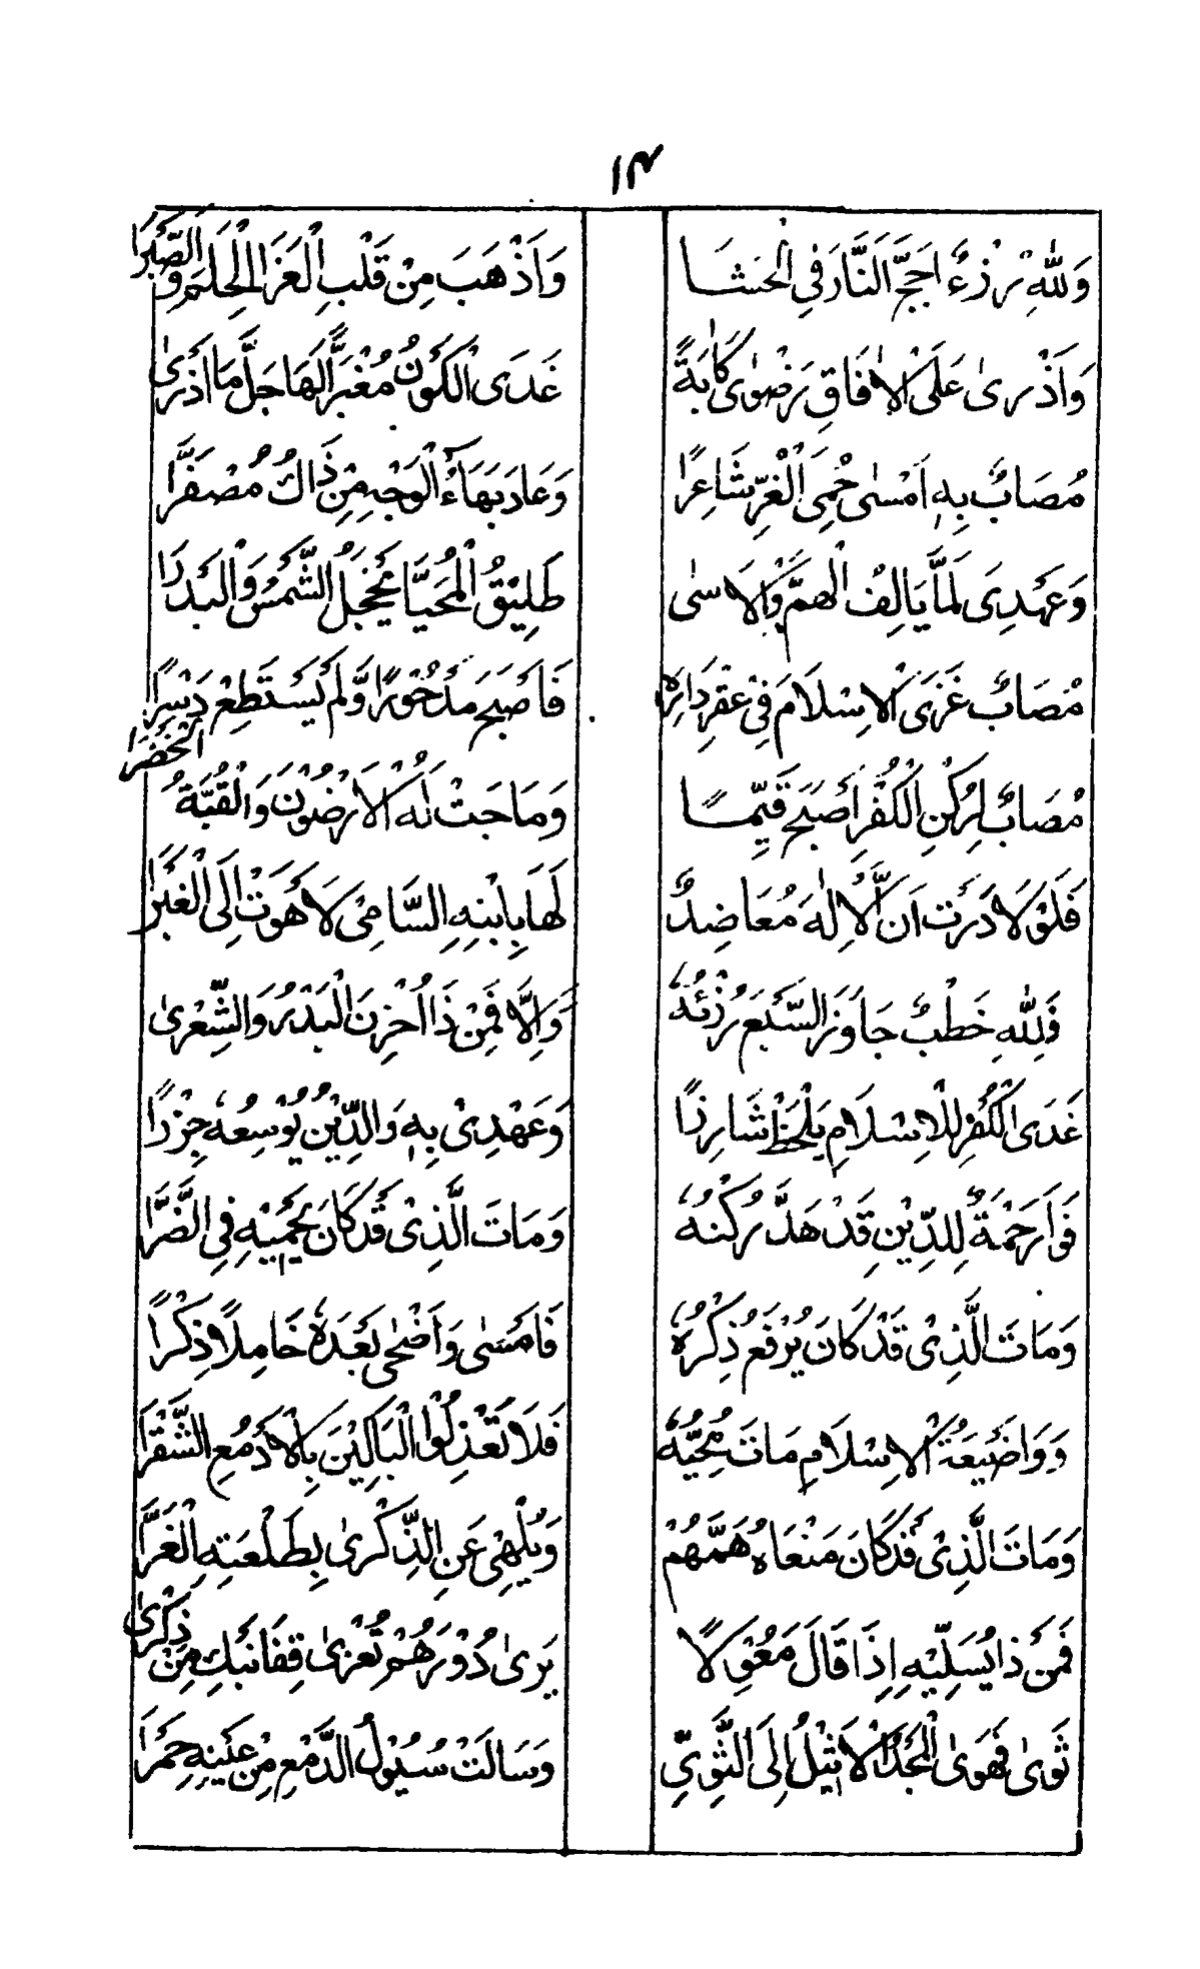 ١٣
وَلِلّٰهِ رُزْءٌ اَجَجَّ النَّارَ فِي الْحَشَا وَاَذْهَبَ مِنْ قَلْبِ الْعَزَا الْحِلْمَ وَالصَّبْرَا
وَاَذْرىٰ عَلَى الْاٰفَاقِ رَضْوٰى كَاٰبَةً غَدَى الْكَوْنُ مُغْبَرًّا لَهَا جَلَّ مَا اَذْرىٰ
مُصَابٌ بِهٖ اَمْسٰى حِمَى الْعِزِّ شَاغِرًا وَعَادَ بَهَاءُ الْوَجْهِ مِنْ ذَاكَ مُصْفَرَّا
وَعَهْدِى لَمَّا يَالِفُ الْهَمَّ وَالْاَسٰى طَلِيْقُ الْمُحَيَّا يُخْجِلُ الشَّمْسَ وَالْبَدْرَا
مُصَابٌ غَزَى الْاِسْلَامَ فِىْ عُقْرِ دَارِهٖ فَاَصْبَحَ مَدْحُوْرًا وَّلَمْ يَسْتَطِعْ دَسْرًا
مُصَابٌ لِرُكْنِ الْكُفْرِ اَصْبَحَ قَيِّمًا وَمَاجَتْ لَهُ الْاَرْضُوْنَ وَالْقُبَّةُ الْخَضْرَا
فَلَوْلَا دَرَتْ اَنَّ الْاِلٰهَ مُعَاضِدٌ لَهَا بِابْنِهِ السَّامِىْ لَاهْوَتْ اِلَى الْغَبْرَا
فَلِلّٰهِ خَطْبٌ جَاوَزَ السَّبْعَ رُزْئُهٗ وَاِلَّا فَمَنْ ذَا اَحْزَنَ الْبَدْرَ وَالشِّعْرىٰ
غَدَى الْكُفْرُ لِلْاِسْلَامِ يَلْحَظُ شَازِرًا وَعَهْدِىْ بِهٖ وَالدِّيْنُ يُوْسِعُهٗ جِزْرًا
فَوَارَحْمَةً لِلدِّيْنِ قَدْ هَدَّ رُكْنُهٗ وَمَاتَ الَّذِىْ قَدْ كَانَ يَحْمِيْهِ فِى الضَّرَّا
وَمَاتَ الَّذِىْ قَدْ كَانَ يُرْفَعُ ذِكْرُهٗ فَاَمْسٰى وَاَضْحٰى بَعْدَهٗ خَامِلًا ذِكْرًا
وَوَاضَيْعَةَ الْاِسْلَامِ مَاتَ مُحِبُّهٗ فَلَا تَعْذِلُوا الْبَاكِيْنَ بِالْاَدْمُعِ الشَّقْرَا
وَمَاتَ الَّذِىْ قَدْ كَانَ مَنْعَاهُ هَمَّهُمْ وَيُلْهِىْ عَنِ الذِّكْرىٰ بِطَلْعَتِهِ الْغَرَّا
فَمَنْ ذَا يُسَلِّيْهِ اِذَا قَالَ مَعْوِلًا يَرىٰ دُوْرَهُمْ تُعْزىٰ قِفَا نَبْكِ مِنْ ذِكْرىٰ
ثَوىٰ فَهَوىٰ الْمَجْدُ الْاَثِيْلُ اِلَى الثَّوِىِّ وَسَالَتْ سُيُوْلُ الدَّمْعِ مِنْ عَيْنِهٖ حُمْرَا